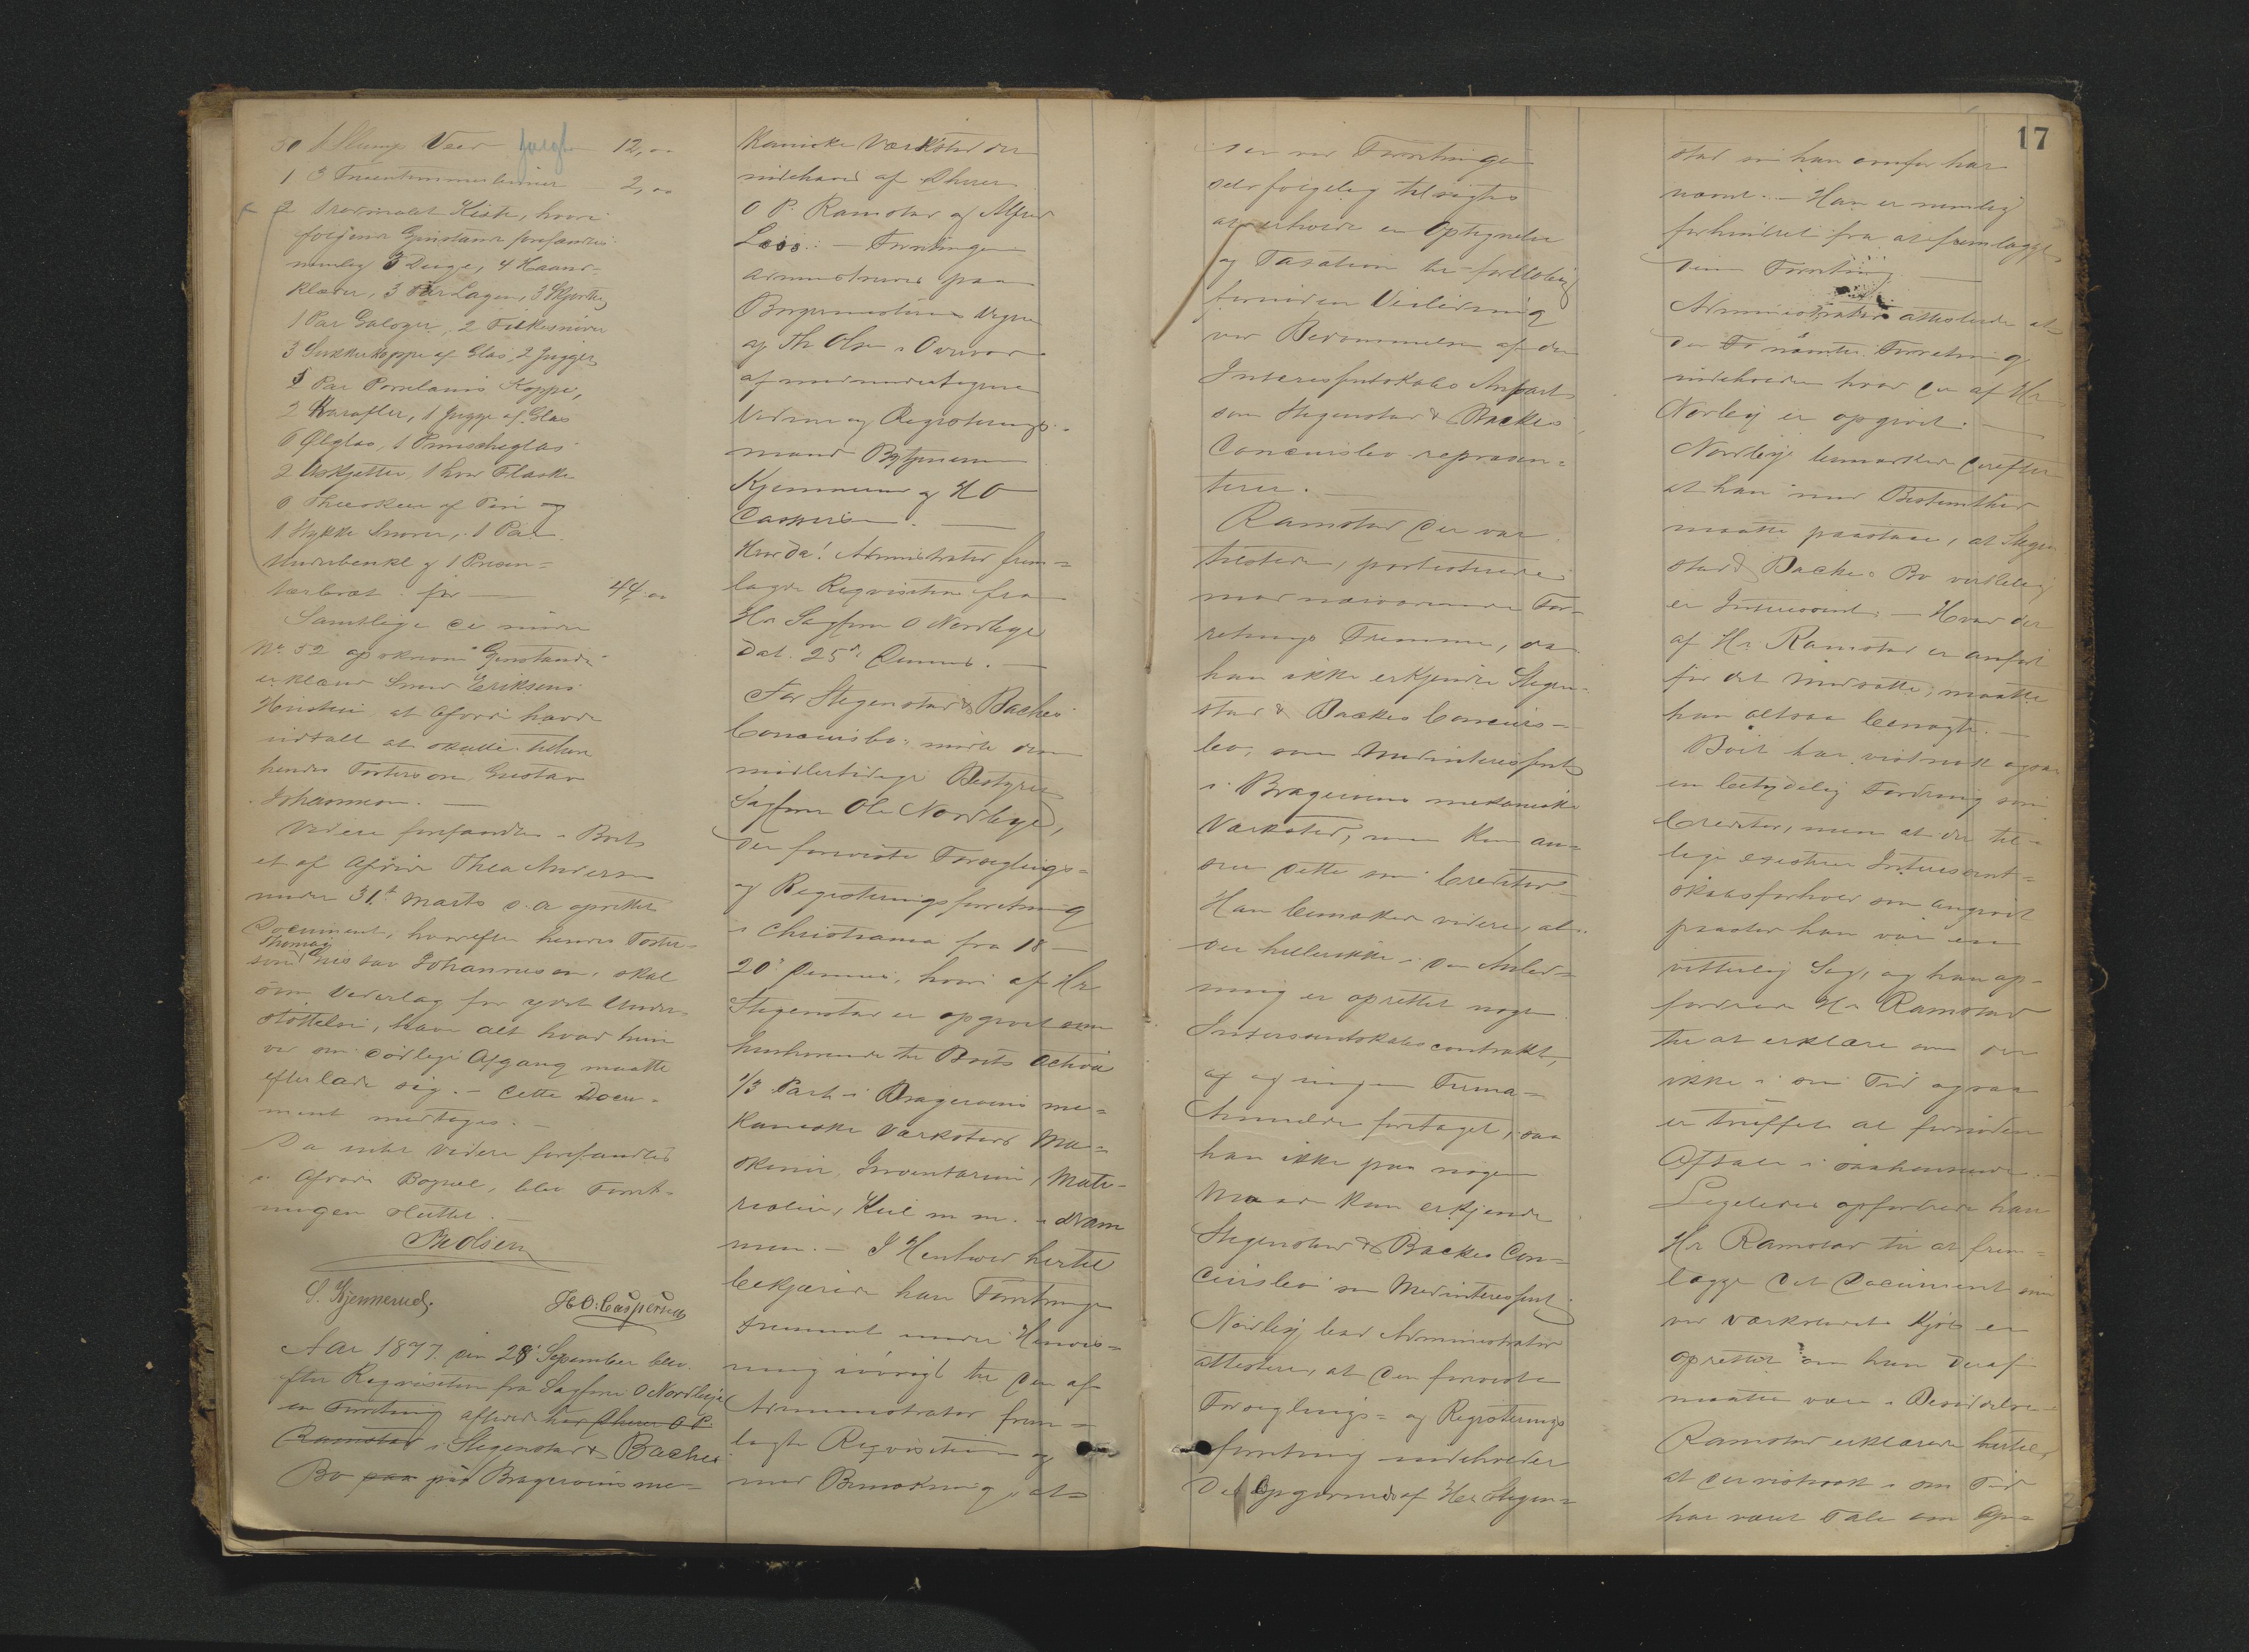 50 1 Slump Veed solgt 12,00
1 3 Fruentimmerlinier 2,00
2 1 rødmalet Kiste, hvori
følgende Gjenstande forefandtes
nemlig 3 Duge, 4 Haand-
klæder, 3 Par Lagen, 3 Skjorter
1 Par Galoger, 2 Fiskesnører
3 Sukkerkopper af Glas, 2 Jugger
5 Par Porcelains Kopper,
2 Karafler, 1 Jugge af Glas
6 Ølglas, 1 Punscheglas
2 Askjetter, 1 hvid Flaske
6 Theeskeer af Tin og
1 Stykke Snører, 1 Par
Underbenkl. og 1 Presen-
terbræt for 44.00
Samtlige de under
No. 52 opskrevne Gjenstande
erklærede Smed Eriksens
Hustru at Afdøde havde
udtalt at skulle tilhøre
hendes Fostersøn Gustav
Johannesen.
Videre forefandtes i Boets
et af Afdøde Thea Andersen
under 31te Marts d. a. oprettet
Document, hvorefter hendes Foster-
Thomas
søn Gustav Johannesen, skal
som Vederlag for ydet Under-
støttelse, have alt hvad hun
ved sin dødelige Afgang maatte
efterlade sig. - Dette Docu-
ment medtages. -
Da intet videre forefandtes
i Afdødes Bopæl, blev Forret-
ningen sluttet. -
Th Olsen
S. Kjennerud. H.O. Caspersen
Aar 1897 den 28 September blev
efter Requisition fra Sagfører O Nordbye
en Forretning afholdt hos Dherrer O. P.
Ramstad i Stegenstad & Backes
Bo paa på Bragerøens me-
kaniske Værksted der
indehaves af Dherrer
O P. Ramstad og Alfred
Loss. - Forretningen
administreredes paa
Borgermesterens Vegne
af Th Olsen i Overvær
af medundertegnede
Vidner og Registrerings-
mænd Bytjener
Kjennerud og H O
Caspersen. -
Hvorda! Administrator frem-
lagde Reqvisition fra
Hr Sagfører O Nordbye
dat. 25de Dennes. -
For Stegenstad & Backes
Concursbo mødte den
midlertidige Bestyrer
Sagfører Ole Nordbye,
der foreviste Forseglings-
og Registreringsforretning
i Christiania fra 18 -
20de Dennes, hvori af Hr
Stegenstad er opgivet som
henhørende til Boets Activa
1/3 Part i Bragerøens me-
kaniske Værksteds Ma-
skiner, Inventarium, Mate-
rialier, Kul m. m. i Dram-
men. - I Henhold hertil
bekjærede han Forretningen
fremmet under Henvis-
ning iøvrigt til den af
Administrator frem-
lagte Reqvisition og
med Bemærkning, at
der ved Forretningen
selvfølgelig tilsigtes
at erholde en Optegnelse
og Taxation til foreløbig
fornøden Veiledning
ved Bedømmelsen af den
Interessentskabs Anpart
som Stegenstad & Backes
Concursbo repræsen-
terer. -
Ramstad der var
tilstede, protesterede
mod nærværende For-
retnings Fremme, da
han ikke erkjender Stegen-
stad & Backes Concurs-
bo, som Medinteressent
i Bragerøens mekaniske
Værksted, men kun an-
ser dette som Creditor. -
Han bemærkede videre, at
der hellerikke i den Anled-
ning er oprettet nogen
Interessentskabscontrakt,
og og ingen Firma-
Anmeldelse foretaget, saa
han ikke paa nogen
Maade kan erkjende
Stegenstad & Backes Con-
cursbo som Medinteressent
Nordbye bad Administrator
attestere, at den foreviste
Forseglings- og Registrerings
forretning indeholder
det Opgivende af Herr Stegen-
17
stad som han ovenfor har
nævnt. - Han er nemlig
forhindret fra at fremlægge
den Forretning. -
Administrator attesterede at
den Fo nævnte Forretning
indeholder hvad der af Hr
Nordbye er opgivet. -
Nordbye bemærkede derefter
at han med Bestemthed
maatte paastaae, at Stegen-
stad & Backes Bo virkelig
er Interessent. - Hvad der
af Hr. Ramstad er anført
for det modsatte, maatte
han altsaa benægte. -
Boet har vistnok ogsaa
en betydelig Fordring som
Creditor, men at der til-
lige existerer Interessent-
skabsforhold som angivet
paastod han var en
vitterlig Sag, og han op-
fordrede Hr Ramstad
til at erklære om der
ikke i sin Tid ogsaa
er truffet al fornøden
Aftale i saahenseende. -
Ligeledes opfordrede han
Hr Ramstad til at frem-
lægge det Document som
ved Værkstedets Kjøb er
oprettet om han deraf
maatte være i Besiddelse. -
Ramstad erklærede hertil,
at der vistnok i sin Tid
har været Tale om Op-